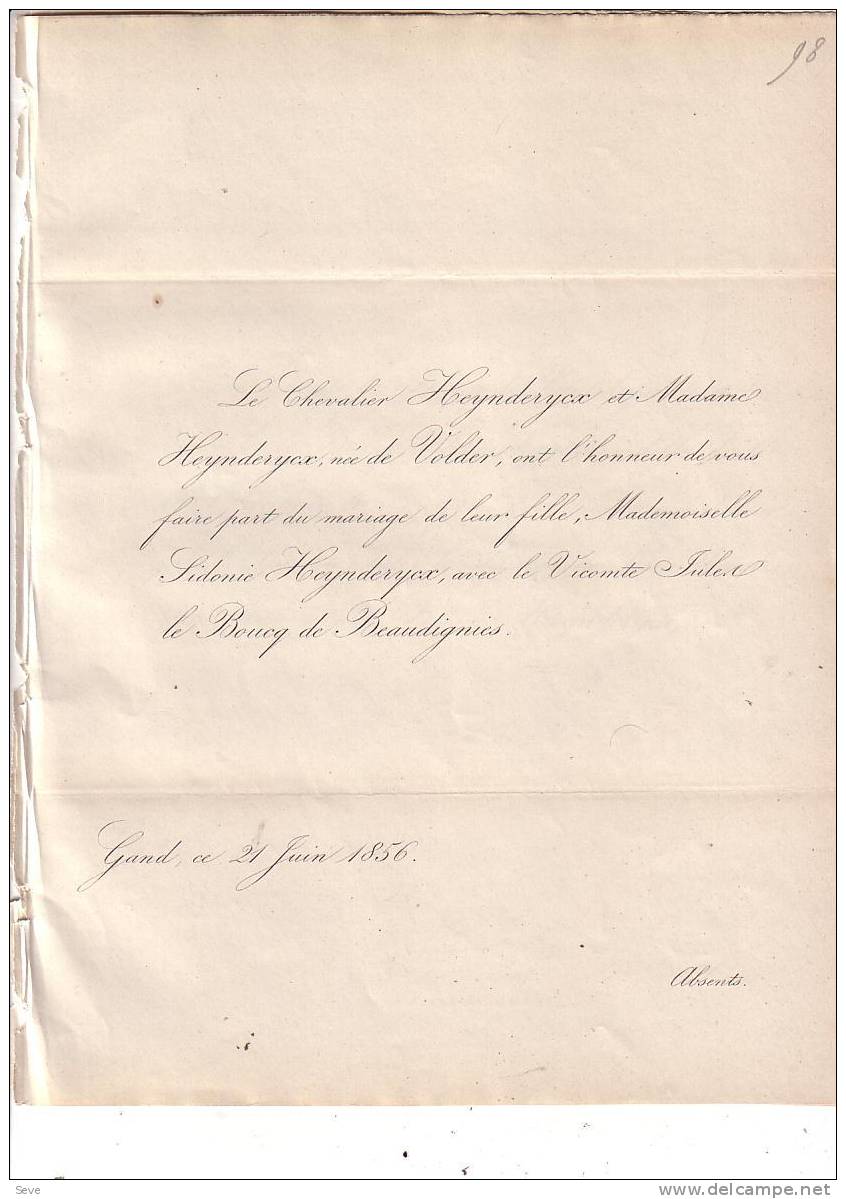 98
Le Chevalier Heynderycx et Madame
Heynderycx, née de Volder, ont l'honneur de vous
faire part du mariage de leur fille, Mademoiselle
Sidonie Heynderycx, avec le Vicomte Jules
le Boucq de Beaudignies.
Gand, ce 21 Juin 1856.
Absents.
Seve
www.delcampe.net